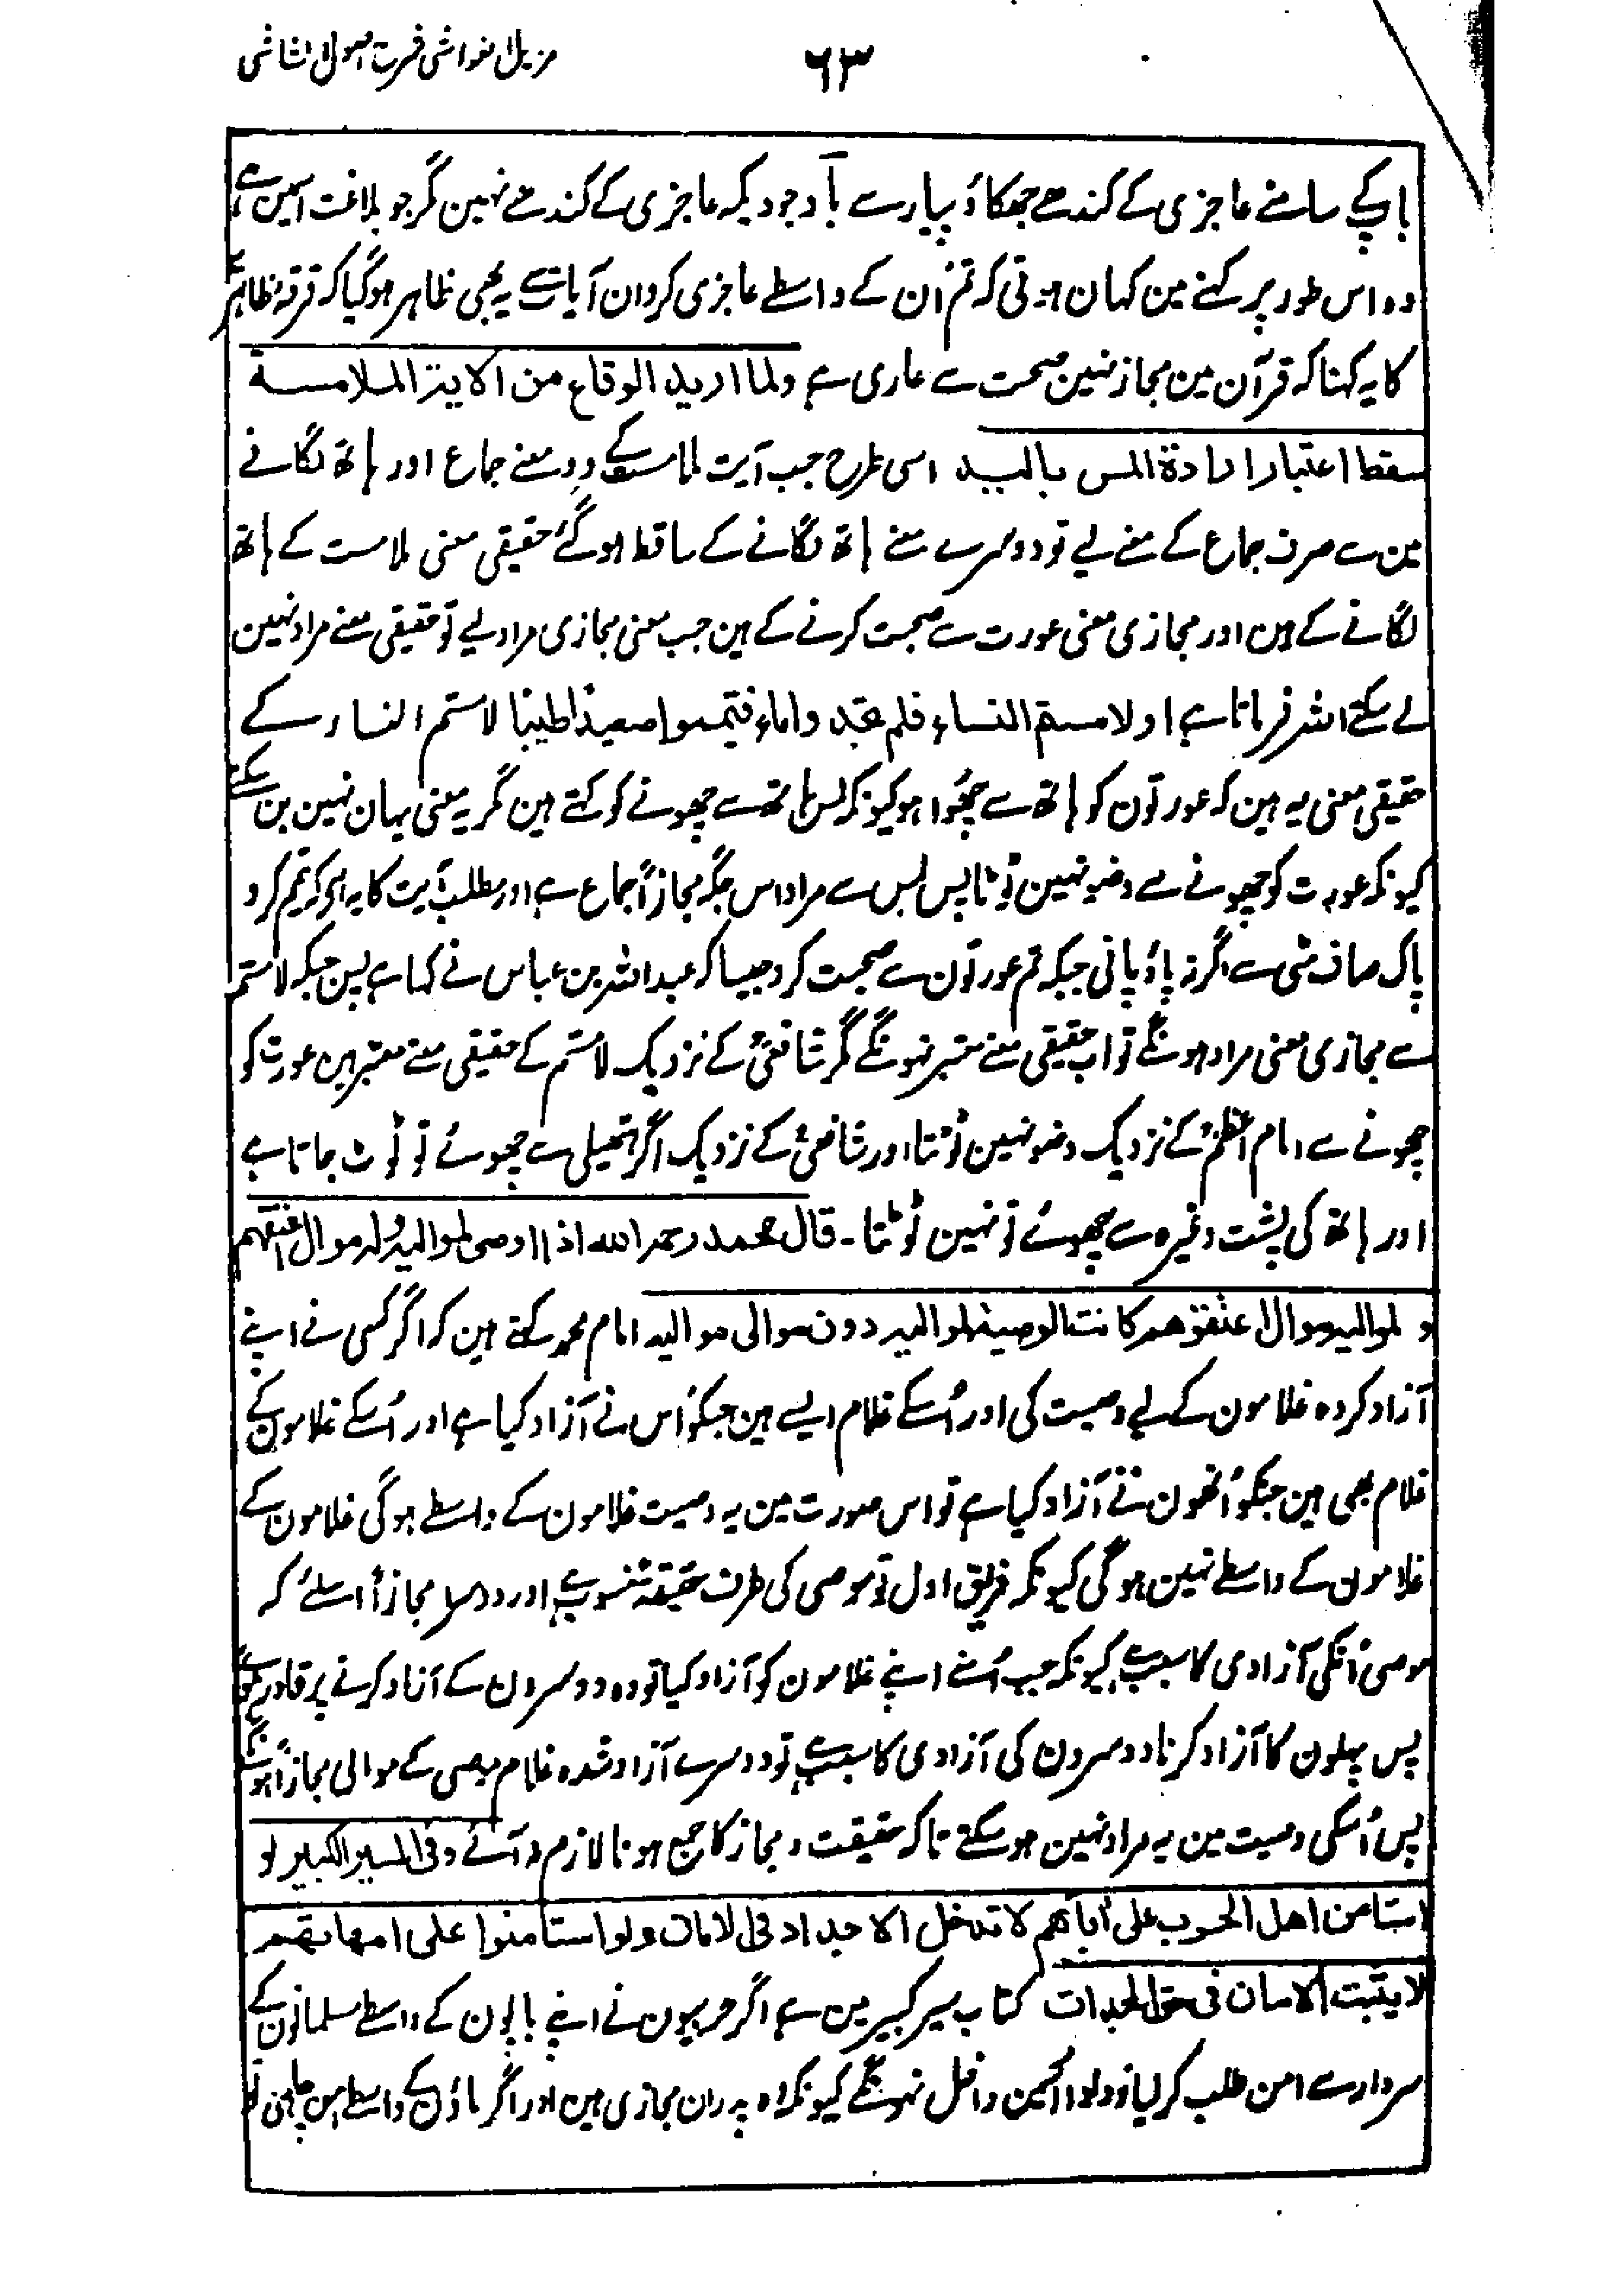 مزیل الغواشی شرح اصول الشاشی
۶۳
باپکے سامنے عاجزی کے کندھے جھکاؤ پیارسے باوجودیکہ عاجزی کے کندھے نہین مگر جو بلاغت اسمین ہے
وہ اس طور پر کہنے مین کہان ہوتی کہ تم اُن کے واسطے عاجزی کرو ان آیات سے یہ بھی ظاہر ہوگیا کہ فرقۂ ظاہریہ
کا یہ کہنا کہ قرآن مین مجاز نہین صحت سے عاری ہے ولما ارید الوقاع من الایۃ الملامسۃ
سقط اعتبار ارادۃ المس بالید اسی طرح جب آیت ملامست کے دو معنے جماع اور ہاتھ لگانے
مین سے صرف جماع کے معنے لیے تو دوسرے معنے ہاتھ لگانے کے ساقط ہوگئے حقیقی معنی ملامست کے ہاتھ
لگانے کے ہین اور مجازی معنی عورت سے صحبت کرنے کے ہین جب معنی مجازی مراد لیے تو حقیقی معنے مراد نہین
لے سکتے اللہ فرماتا ہے اولامستم النساء فلم تجدوا ماء فتیمموا صعیدا طیبا لامستم النساء کے
حقیقی معنی یہ ہین کہ عورتون کو ہاتھ سے چھُوا ہو کیونکہ لمس ہاتھ سے چھونے کو کہتے ہین مگر یہ معنی یہان نہین بن سکتے
کیونکہ عورت کو چھونے سے وضو نہین ٹوٹتا پس لمس سے مراد اس جگہ مجازاً جماع ہے اور مطلب آیت کا یہ ہی کہ تیمم کرو
پاک صاف مٹی سے اگر نہ پاؤ پانی جبکہ تم عورتون سے صحبت کرو جیسا کہ عبداللہ بن عباس نے کہا ہے پس جبکہ لامستم
سے مجازی معنی مراد ہونگے تو اب حقیقی معنے معتبر نہونگے مگر شافعیؒ کے نزدیک لامستم کے حقیقی معنے معتبر ہین عورت کو
چھونے سے امام اعظمؒ کے نزدیک وضو نہین ٹوٹتا اور شافعیؒ کے نزدیک اگر ہتھیلی سے چھوئے تو ٹوٹ جاتا ہے
اور ہاتھ کی پشت وغیرہ سے چھوئے تو نہین ٹوٹتا۔ قال محمد رحمہ اللہ اذا اوصی لموالیہ ولہ موال اعتقھم
ولموالیہ موال اعتقوھم کانت الوصیۃ لموالیہ دون موالی موالیہ امام محمد کہتے ہین کہ اگر کسی نے اپنے
آزاد کردہ غلامون کے لیے وصیت کی اور اُسکے غلام ایسے ہین جنکو اُس نے آزاد کیا ہے اور اُسکے غلامون کے
غلام بھی ہین جنکو اُنھون نے آزاد کیا ہے تو اس صورت مین یہ وصیت غلامون کے واسطے ہوگی غلامون کے
غلامون کے واسطے نہین ہوگی کیونکہ فریق اول تو موصی کی طرف حقیقۃً منسوب ہے اور دوسرا مجازاً اسلئے کہ
موصی اُنکی آزادی کا سبب ہے کیونکہ جب اُسنے اپنے غلامون کو آزاد کیا تو وہ دوسرون کے آزاد کرنے پر قادر ہوے
پس پہلون کا آزاد کرنا دوسرون کی آزادی کا سبب ہے تو دوسرے آزاد شدہ غلام موصی کے موالی مجازاً ہونگے
پس اُسکی وصیت مین یہ مراد نہین ہوسکتے تاکہ حقیقت و مجاز کا جمع ہونا لازم نہ آئے وفی السیر الکبیر لو
استامن اھل الحرب علی اٰبائھم لاتدخل الاجداد فی الامان ولو استامنوا علی امھاتھم
لایثبت الامان فی حق الجدات کتاب سیر کبیر مین ہے اگر حربیون نے اپنے باپون کے واسطے مسلمانون کے
سردار سے امن طلب کرلیا تو دادا اسمین داخل نہونگے کیونکہ وہ پدران مجازی ہین اور اگر ماؤن کے واسطے امن چاہین تو